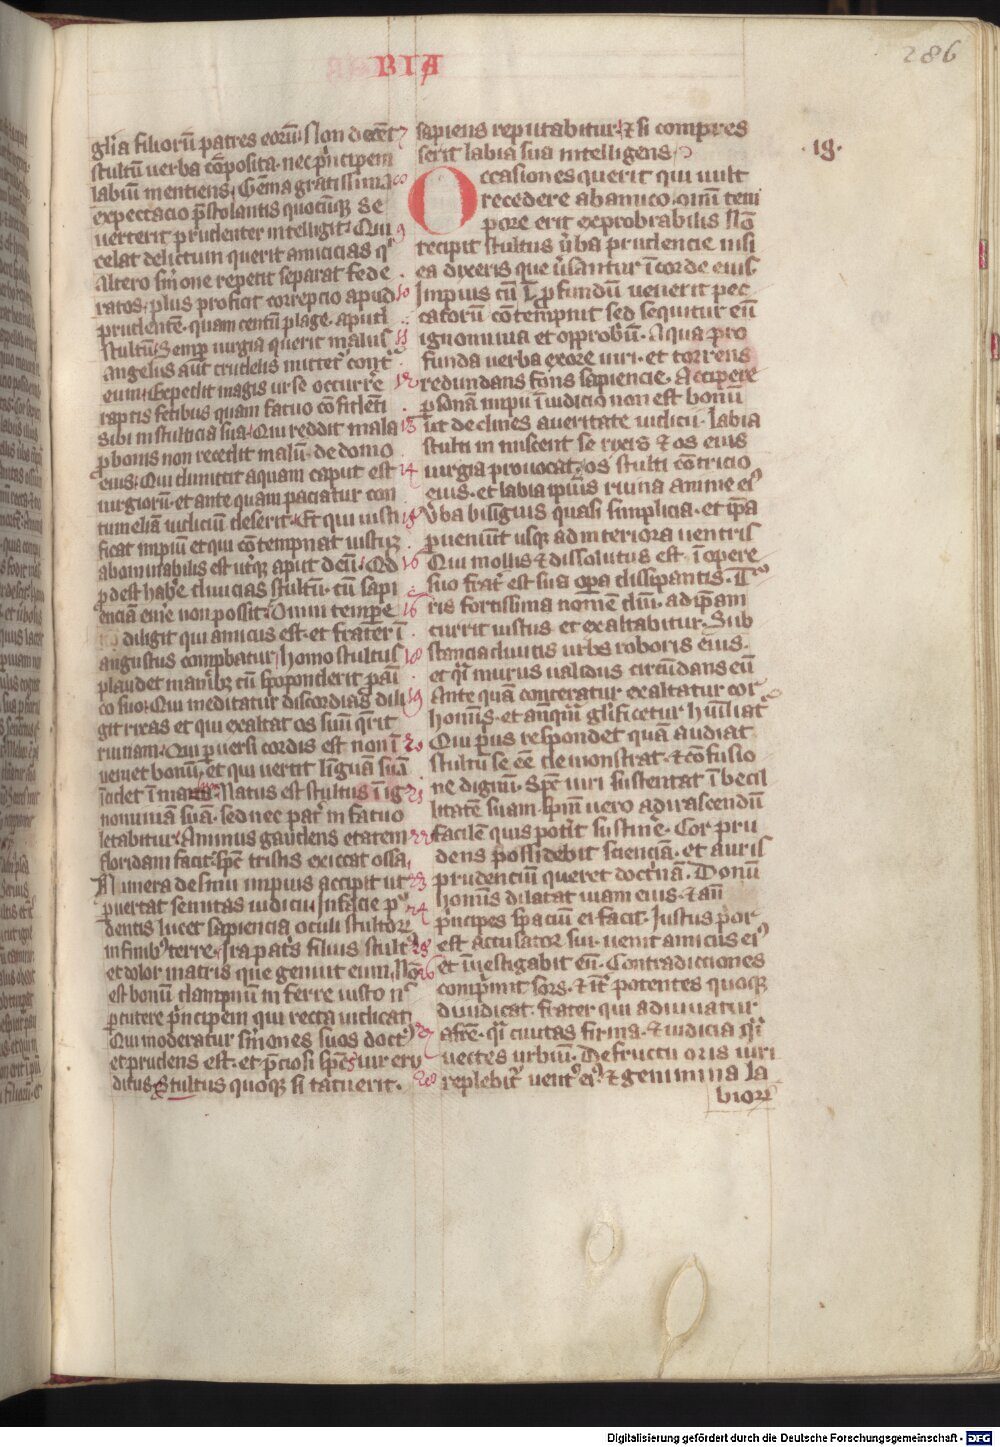 BIA
286
glīa filiorū patres eorū. Non decēt
stultū verba cōposita. nec pⁱncipem
labiū mentiens. Gēma gratissima
expectacio p̄stolantis quocūq̢ se
verterit prudenter intelligit. Qui
celat delictum querit amicicias qⁱ
altero sⁱmone repetit separat fede
ratos. plus proficit correpcio apud
prudentē. quam centū plage. aput
stultū. Semp̲ iurgia querit malus
Angelus aūt crudelis mittet̾ cont̾
eum. Expedit magis urse occurre
raptis fetibus quam fatuo cōfidēti
sibi in stulticia sua. Qui reddit mala
p̲ bonis non recedit malū. de domo
eius. Qui dimittit aquam caput est
iurgiorū. et ante quam paciatur con
tumeliā iudiciū deserit. Et qui iusti
ficat impiū et qui cōtempnat iustū
abominabilis est ut̾q̢ aput deū. Qd
p̲dest hab̾e diuicias stultū. cū sapi
enciā em̾e non possit. Omni tempore
diligit qui amicus est. et frater ī
angustiis comp̲batur. homo stultus
plaudet manib̢ cū spoponderit p̲ amī
co suo. Qui meditatur discordias dili
git rixas et qui exaltat os suū q̾rit
ruinam. Qui p̲uersi cordis est non ī
ueniet bonū. et qui vertit linguā suā
īcidet ī malū. Natus est stultus ī ig
nominiā suā. sed nec pat̾ in fatuo
letabitur. Animus gaudens etatem
floridam facit. sp̄c tristis exiccat ossa.
Munera de sinu impius accipit ut
p̲uertat semitas iudicii. In facie pⁱ
dentis lucet sapiencia oculi stultorꝝ
in finib̢ terre. Ira pat̾s filius stult̾
et dolor matris que genuit eum. Nō
est bonū dampnū in ferre iusto nᶜ
p̲cutere pⁱncipem qui recta iudicat.
Qui moderatur sⁱmones suos doct̾
et prudens est. et p̾ciosi sp̄c vir eru
ditus. Stultus quoq̢ si tacuerit.
7
8
9
10
11
12
13
14
15
16
16
18
19
20
21
22
23
24
25
26
27
28
sapiens reputabitur. ⁊ si compres
serit labia sua intelligens.
18.
Occasiones querit qui uult
recedere ab amico. omī tem
pore erit exprobrabilis Nō
recipit stultus v̾ba prudencie nisi
ea dixeris que v̾santur ī corde eius.
Impius cū ī p̲fundū venerit pec
catorū cōtempnit sed sequitur eū
ignominia et opprobriū. Aqua pro
funda verba ex ore viri. et torrens
redundans fons sapiencie. Accipere
p̲sonā impii ī iudicio non est bonū
ut declines a veritate iudicii. labia
stulti in miscent se rixis ⁊ os eius
iurgia prouocat. os stulti cōtricio
eius. et labia ipius ruina anime eiꝰ
v̾ba bisiguis quasi simplicia. et ip̄a
p̲ueniūt usq̢ ad interiora ventris
Qui mollis ⁊ dissolutus est. ī opere
suo frat̾ est sua op̲a dissipantis. Tᵘ
ris fortissima nomē dn̄i. ad ip̄am
currit iustus et exaltabitur. Sub
stancia diuitis urbs roboris eius.
et qⁱ murus validus circūdans eū
Ante quā conteratur exaltatur cor
hominis. et ān̄qᵃm glⁱficetur humiliat̾
Qui p̾us respondet quā audiat
stultū se eē demonstrat. ⁊ cōfusio
ne dignū. Sp̄c viri sustentat ībecil
litatē suam. sp̄m vero ad irascendū
facilē quis potⁱt sustin̾e. Cor pru
dens possidebit scienciā. et auris
prudenciū queret doctⁱnā. Donū
hominis dilatat viam eius. ⁊ an̄
pⁱncipes spaciū ei facit. Iustus p̾or
est accusator sui. venit amicus eiꝰ
et īuestigabit eū. Contradictiones
compⁱmit sors. ⁊ int̾ potentes quoq̢
diiudicat. frater qui adiuuatur
a frē. qⁱ ciuitas firma. ⁊ iudicia qⁱ
vectes urbiū. De fructu oris viri
replebit̾ vent̾ eiꝰ ⁊ genimina la
biorꝝ
Digitalisierung gefördert durch die Deutsche Forschungsgemeinschaft - DFG